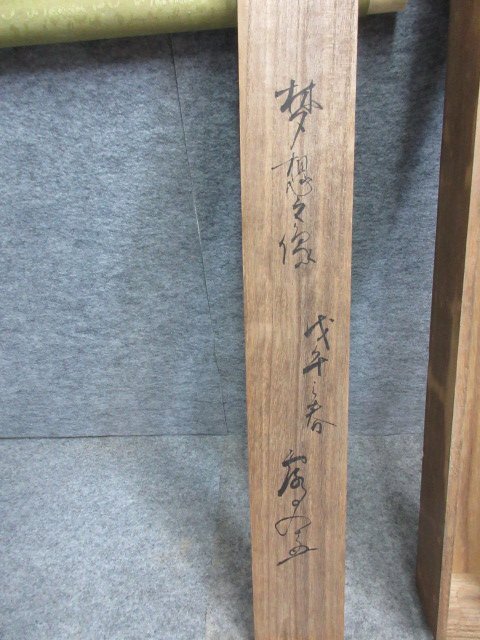 夢想之像
戊午之春